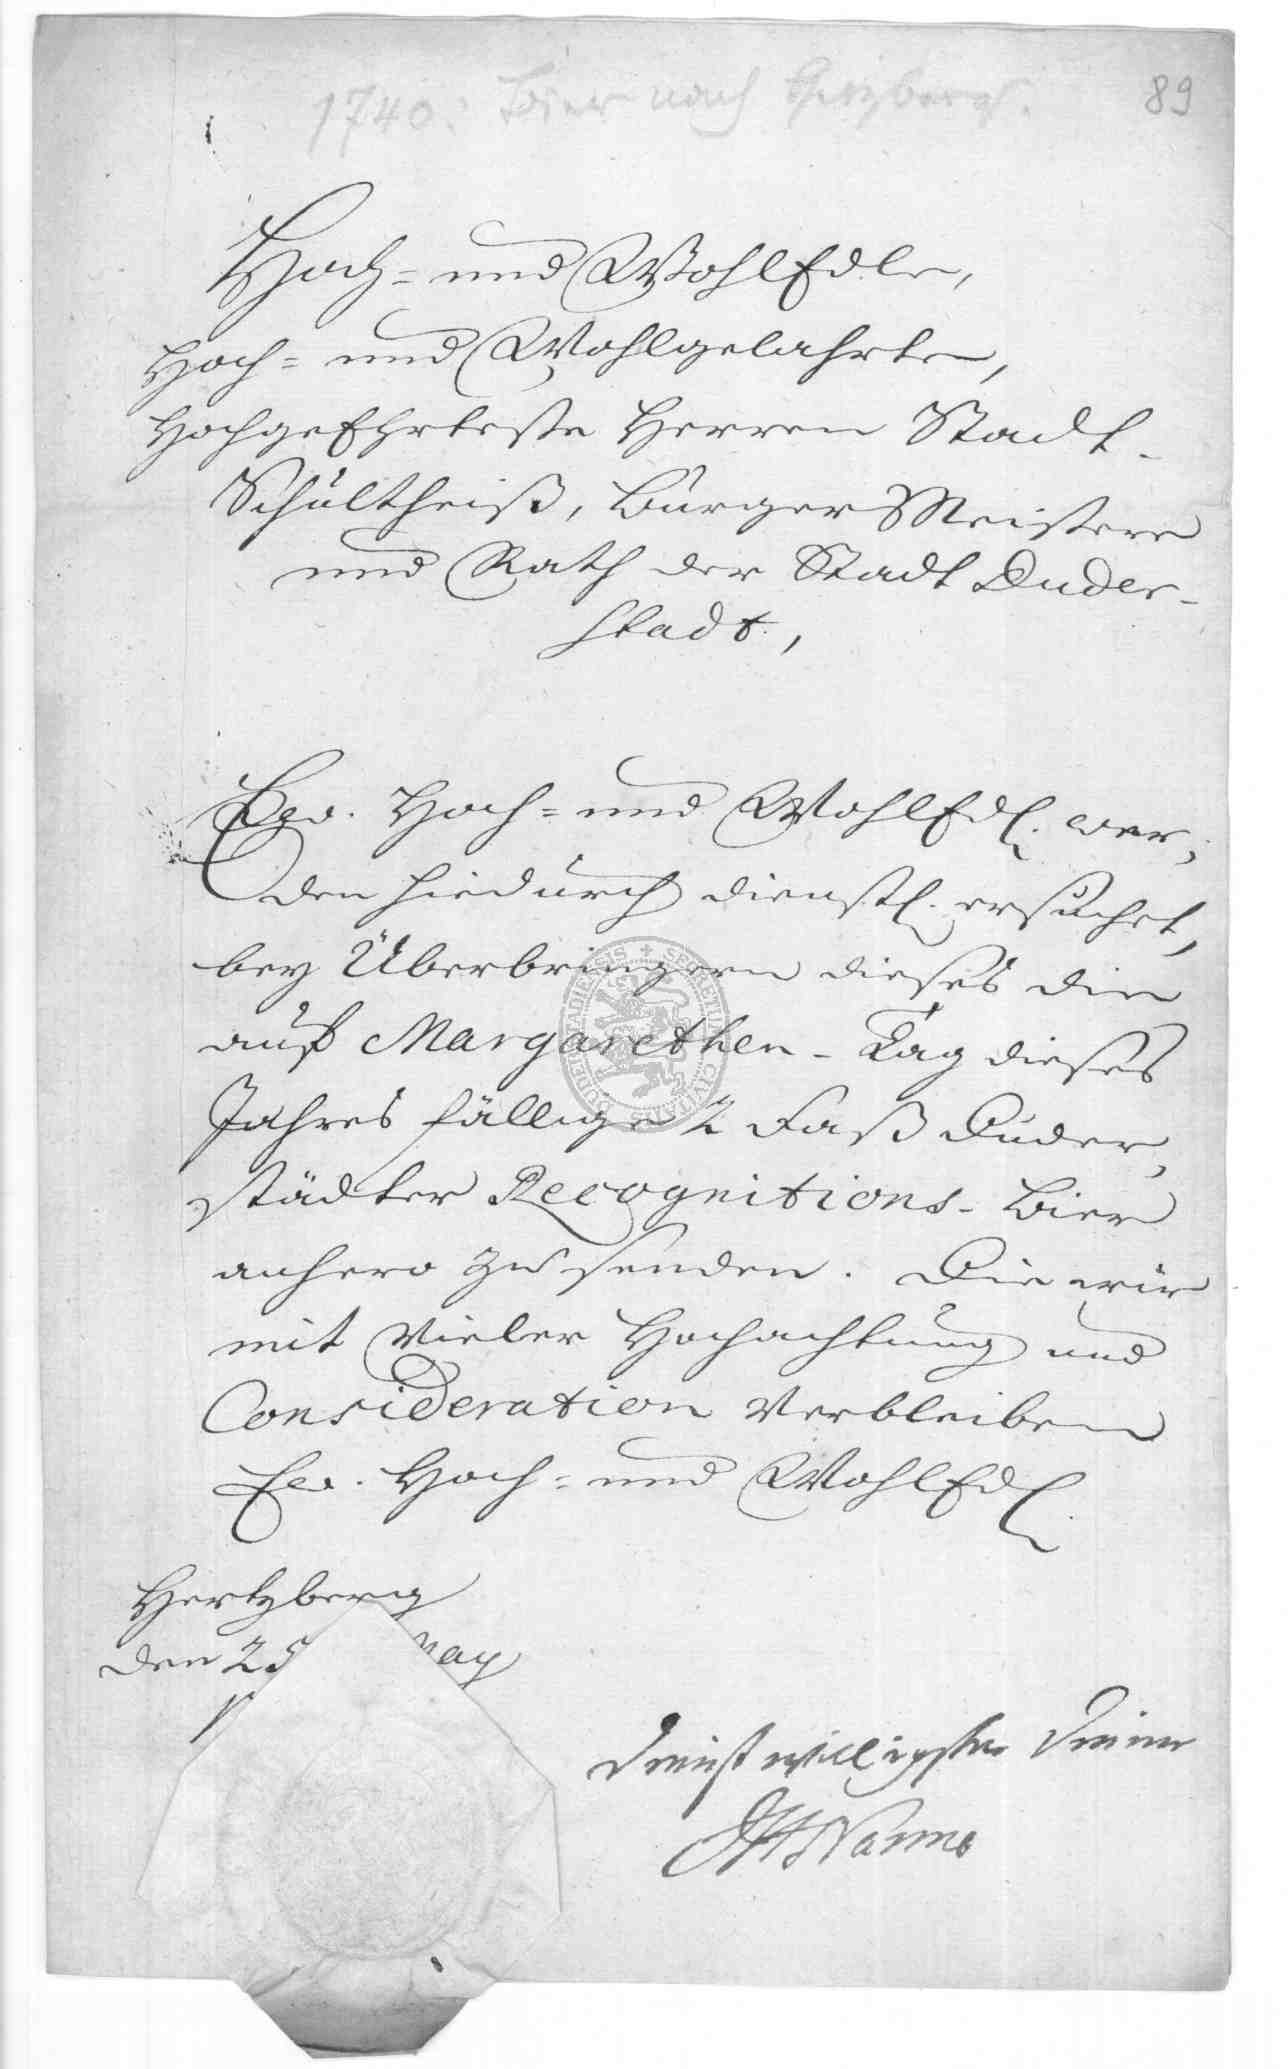 1740. Bier nach Herzberg.
89
Hoch- und WohlEdle,
Hoch- und Wohlgelahrte,
HochgeEhrteste Herren Stadt-
Schultheiß, BürgerMeistere
und Rath der Stadt Duder-
stadt,
Ew. Hoch- und WohlEdl. wer-
den hiedurch dienstl. ersuchet,
bey Überbringern dieses die
auf Margarethen-Tag dieses
Jahres fällige 2 Faß Duder-
städter Recognitions-Bier
anhero zu senden. Die wir
mit vieler Hochachtung und
Consideration verbleiben
Ew. Hoch- und WohlEdl.
Hertzberg
den 25 May
Dienstwilligster Diener
SECRETUM CIVITATIS DUDERSTADIENSIS